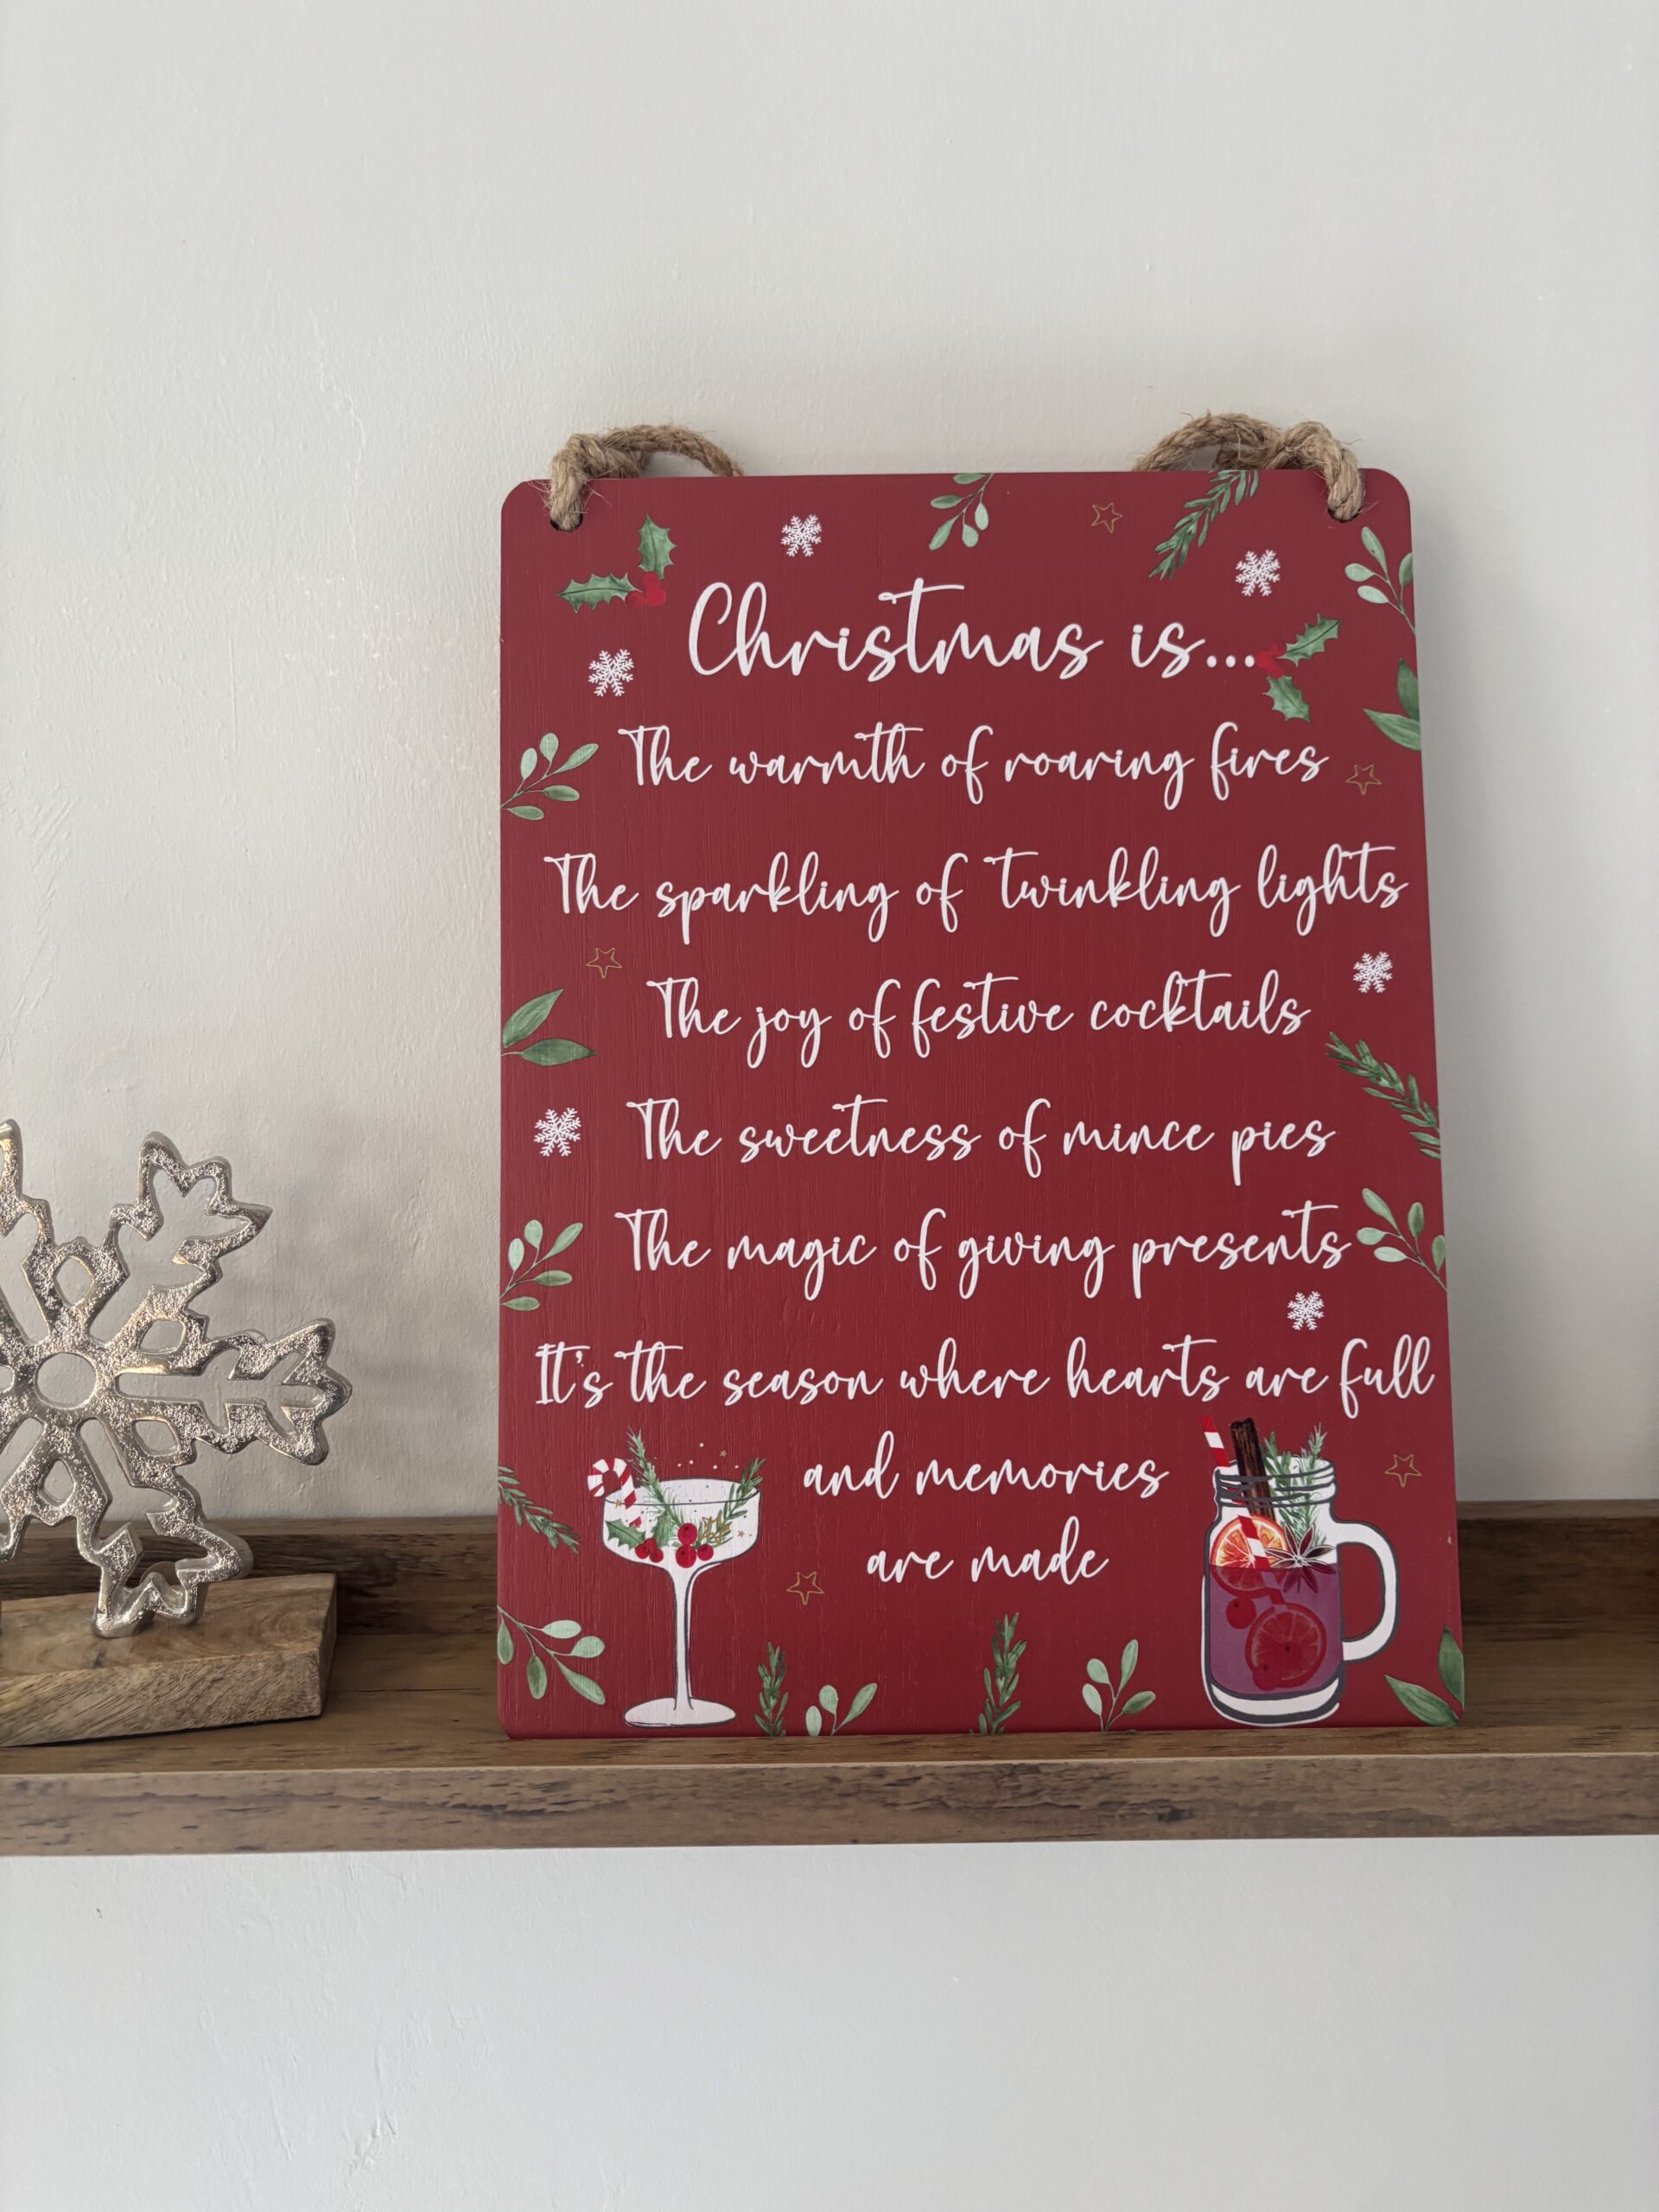 Christmas is...
The warmth of roaring fires
The sparkling of twinkling lights
The joy of festive cocktails
The sweetness of mince pies
The magic of giving presents
It's the season where hearts are full
and memories
are made